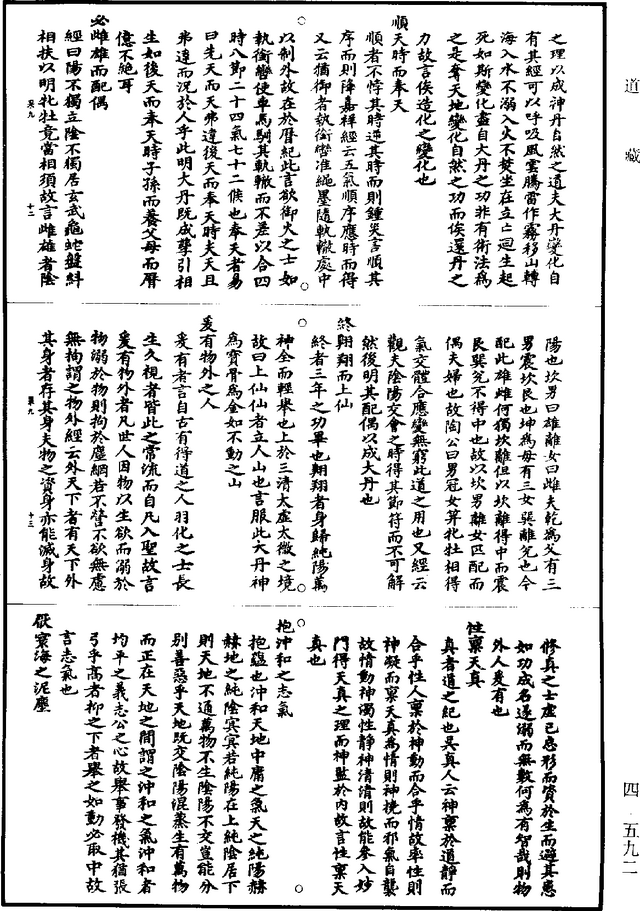 道藏
之理以成神丹自然之道夫大丹變化自
有其經可以呼吸風雲騰雷作霧移山轉
海入水不溺入火不焚坐在立亡迴生起
死如斯變化盡自大丹之功非有術法為
之是奪天地變化自然之功而俟還丹之
力故言俟造化之變化也
順天時而奉天
順者不悖其時逆其時而則鍾災言順其
序而則降嘉祥經云五氣順序應時而得
又云猶御者執銜轡准繩墨隨軌轍處中
以制外故在於曆紀此言欲御火之士如
執銜轡使車馬馴其軌轍而不差以合四
時八節二十四氣七十二候也奉天者易
曰先天而天弗違後天而奉天時夫天且
弗違而況於人乎此明大丹既成孽引相
生如後天而奉天時子孫而養父母而曆
億不絕耳
必雌雄而配偶
經曰陽不獨立陰不獨居玄武龜蛇盤糾
相扶以明牝牡竟當相須故言雌雄者陰
吳九 十二
陽也坎男曰雄離女曰雌夫乾為父有三
男震坎艮也坤為母有三女巽離兌也今
配此雄雌何獨坎離但以坎離得中而震
艮巽兌不得中也故以坎男離女匹配而
偶夫婦也故陶公曰男冠女笄牝牡相得
氣交體合應變無窮此道之用也又經云
觀夫陰陽交會之時得其節符而不可解
然後明其配偶以成大丹也
終翱翔而上仙
終者三年之功畢也翱翔者身歸純陽萬
神全而輕舉也上於三清太虛太微之境
故曰上仙仙者立人山也言服此大丹神
為寶骨為金如不動之山
爰有物外之人
爰有者言自古有得道之人羽化之士長
生久視者皆此之常流而自凡入聖故言
爰有物外者凡世人因物以生欲而溺於
物溺於物則拘於塵網若不營不欲無慮
無拘謂之物外經云外天下者有天下外
其身者存其身夫物之資身亦能滅身故
吳九 十三
修真之士虛己忘形而資於生而避其患
如功成名遂溺而無數何為有智哉則物
外人爰有也
性稟天真
真者道之紀也吳真人云神稟於道靜而
合乎性人稟於神動而合乎情故率性則
神凝而稟天真為情則神撓而邪氣自襲
故情動神濁性靜神清清則故能參入妙
門得天真之理而神監於內故言性稟天
真也
抱沖和之志氣
抱蘊也沖和天地中庸之氣天之純陽赫
赫地之純陰冥冥若純陽在上純陰居下
則天地不通萬物不生陰陽不交豈能分
別善惡乎天地既交陰陽混蒸生有萬物
而正在天地之間謂之沖和之氣沖和者
均平之義志公之心故舉事發機其猶張
弓乎高者抑之下者舉之如動必取中故
言志氣也
厭寰海之泥塵
四·五九二